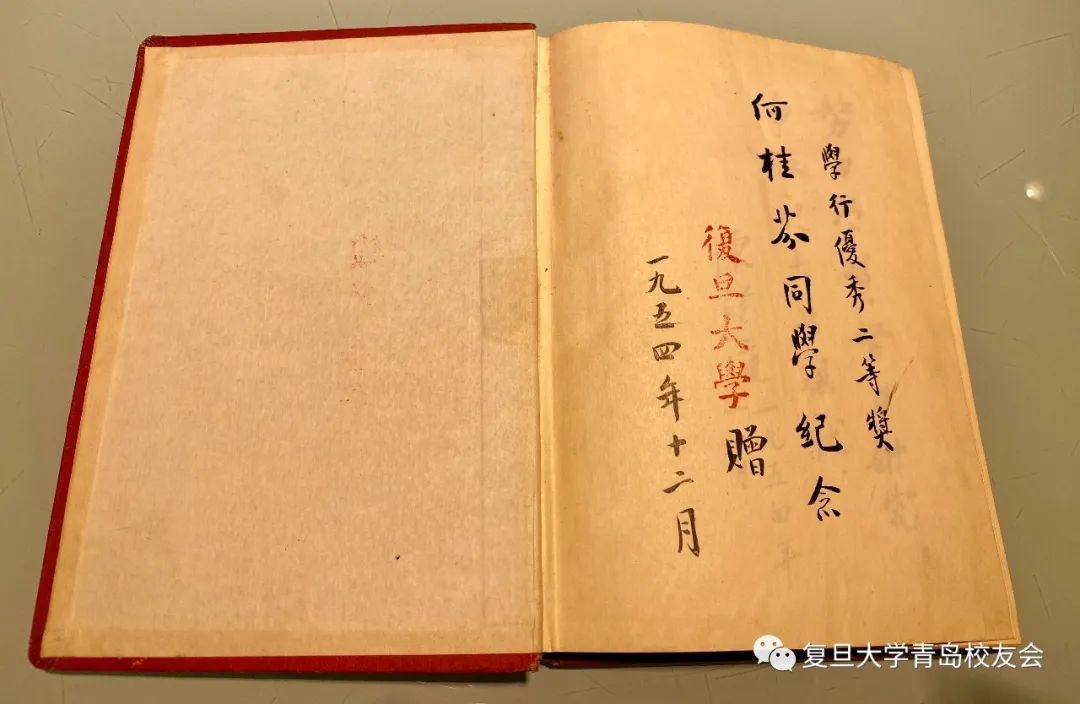 學行優秀二等獎
何桂芬同學紀念
復旦大學贈
一九五四年十二月
复旦大学青岛校友会